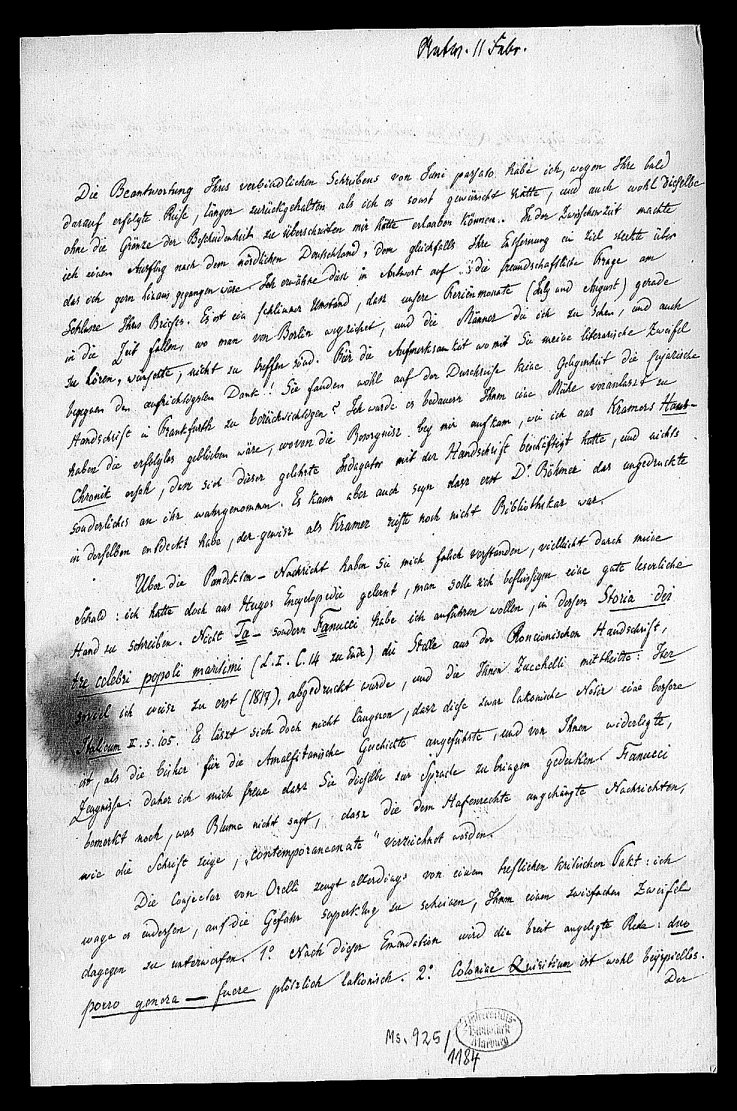 Antw. 11 Febr.
Die Beantwortung Ihres verbindlichen Schreibens von Juni passato habe ich, wegen Ihre bald
darauf erfolgte Reise, länger zurückgehalten als ich es sonst gewünscht hätte, und auch wohl dieselbe
ohne die Gränze der Bescheidenheit zu überschreiten mir hätte erlauben können. In der Zwischenzeit machte
ich einen Ausflug nach dem nördlichen Deutschland, dem gleichfalls Ihre Entfernung ein Ziel steckte über
das ich gern hinaus gegangen wäre. Ich erwähne diess in Antwort auf die freundschaftliche Frage am
Schlusse Ihres Briefes. Es ist ein schlimmer Umstand, dass unsere Ferienmonate (July und August) gerade
in die Zeit fallen, wo man von Berlin wegreiset, und die Männer die ich zu sehen, und auch
zu hören, wünschte, nicht zu treffen sind. Für die Aufmerksamkeit womit Sie meine literarische Zweifel
begegnen den aufrichtigsten Dank! Sie fanden wohl auf der Durchreise keine Gelegenheit die Cujacische
Handschrift in Frankfurth zu berücksichtigen? Ich würde es bedauern Ihnen eine Mühe veranlasst zu
haben die erfolglos geblieben wäre, wovon die Besorgniss bey mir aufkam, wie ich aus Kramers Haus-
Chronik ersah, dass sich dieser gelehrte Indagator mit der Handschrift beschäftigt hatte, und nichts
sonderliches an ihr wahrgenommen. Es kann aber auch seyn dass erst Dr. Böhmer das ungedruckte
in derselben entdeckt habe, der gewiss als Kramer reiste noch nicht Bibliothekar war.
Uber die Pandekten-Nachricht haben Sie mich falsch verstanden, vielleicht durch meine
Schuld: ich hätte doch aus Hugos Encyclopedie gelernt, man solle sich befleissigen eine gute leserliche
Hand zu schreiben. Nicht Ta- sondern Fanucci habe ich anführen wollen, in dessen Storia dei
tre celebri popoli maritimi (L. I. C. 14 zu Ende) die Stelle aus der Roncionischen Handschrift,
soviel ich weiss zu erst (1817), abgedruckt wurde, und die Ihnen Zucchelli mittheilte: Iter
Italicum II. S. 105. Es lässt sich doch nicht läugnen, dass diese zwar lakonische Notiz eine bessere
ist, als die bisher für die Amalfitanische Geschichte angeführte, und von Ihnen widerlegte,
Zeugnisse: daher ich mich freue dass Sie dieselbe zur Sprache zu bringen gedenken. Fanucci
bemerkt noch, was Blume nicht sagt, dass die dem Hafenrechte angehängte Nachrichten,
wie die Schrift zeige, „contemporaneamente“ verzeichnet worden.
Die Conjectur von Orelli zeugt allerdings von einem treflichen kritischen Takt: ich
wage es indessen, auf die Gefahr superklug zu scheinen, Ihnen einen zwiefachen Zweifel
dagegen zu unterwerfen. 1º. Nach dieser Emendation wird die breit angelegte Rede: duo
porro genera — fuere plötzlich lakonisch. 2º. Coloniae Quiritium ist wohl beÿspiellos.
Der
Ms. 925/
1184
Universitäts
Bibliothek
Marburg